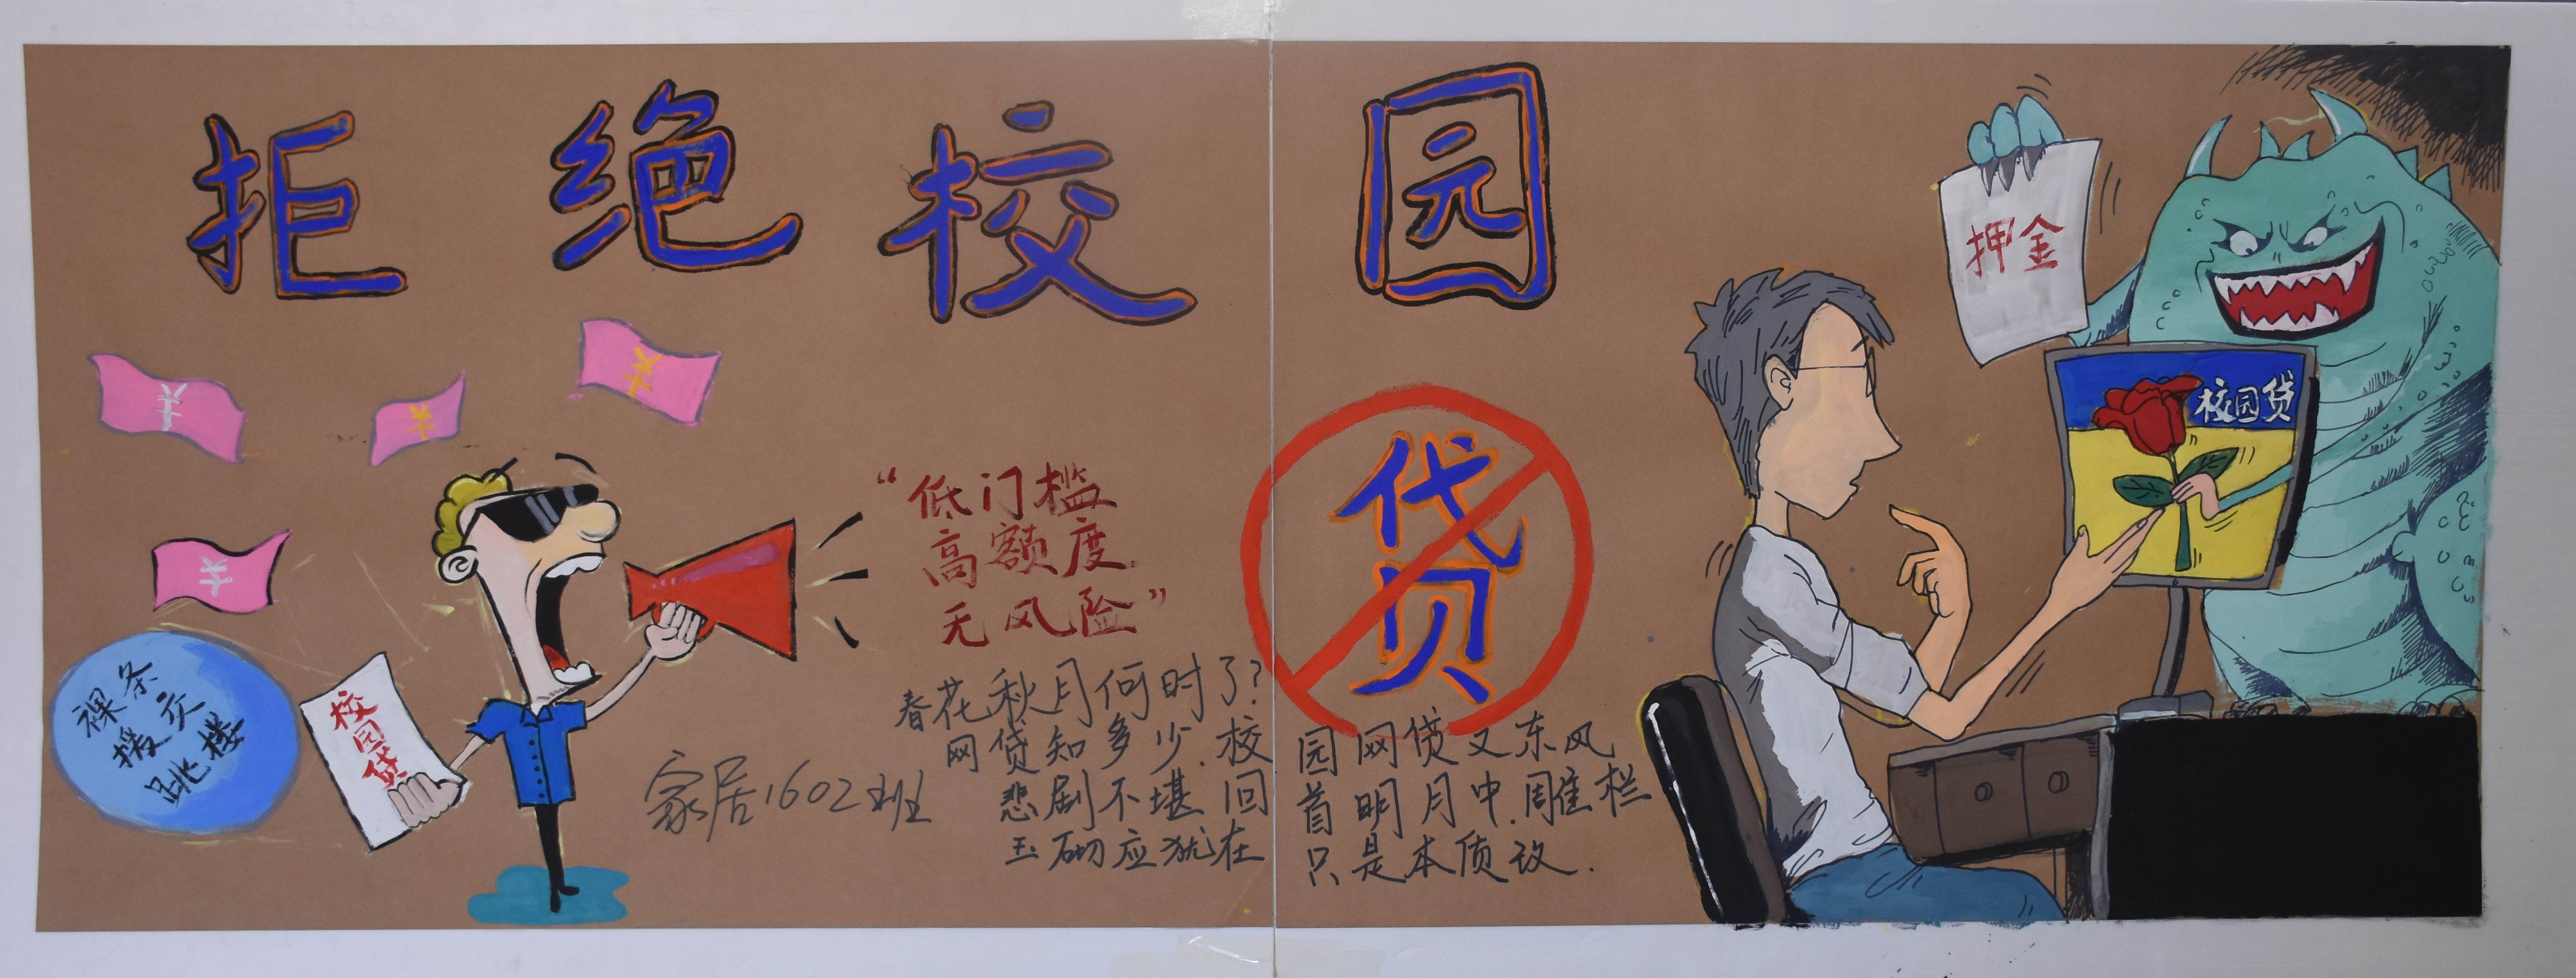 拒绝校园贷
押金
校园贷
“低门槛
高额度
无风险”
裸条
援交
跳楼
校园贷
春花秋月何时了?
网贷知多少.校园网贷又东风
悲剧不堪回首明月中.雕栏
玉砌应犹在只是本质改.
家居1602班